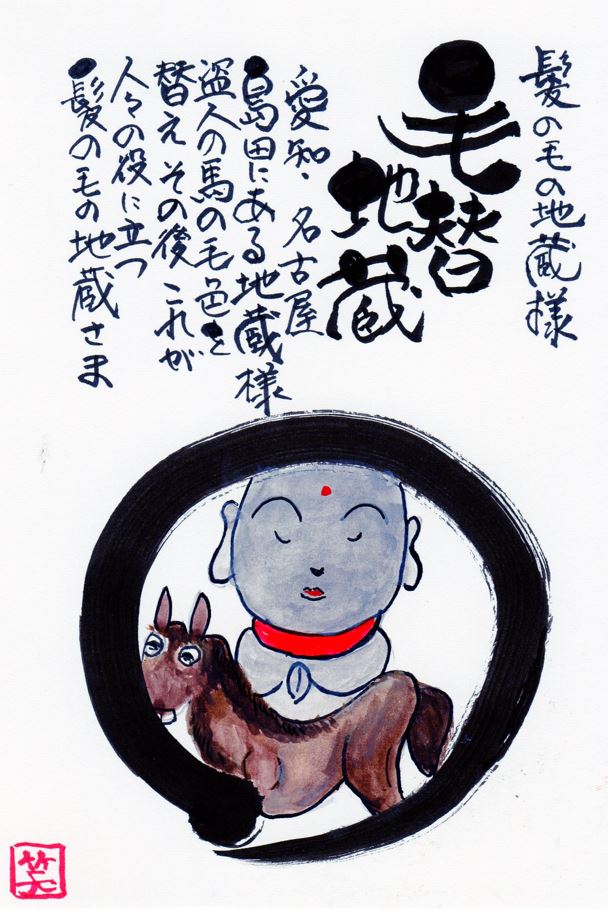 髪の毛の地蔵様
毛替
地蔵
愛知・名古屋
島田にある地蔵様
盗人の馬の毛色を
替えその後これが
人々の役に立つ
髪の毛の地蔵さま
笑